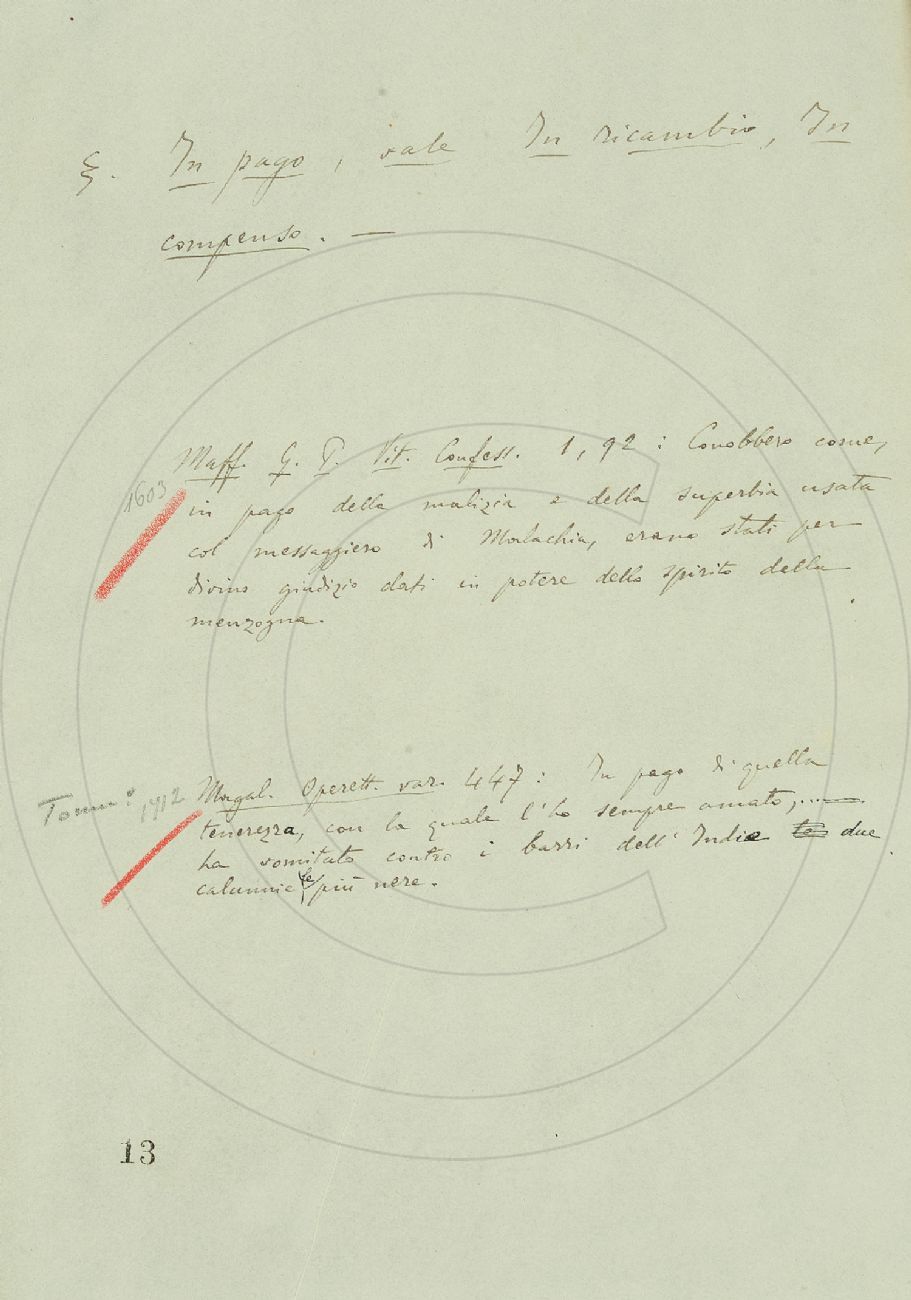 §. In pago, vale In ricambio, In
compenso. —
Maff. G. P. Vit. Confess. 1, 92 : Conobbero come,
1603
in pago della malizia e della superbia usata
col messaggiero di Malachia, erano stati per
divino giudizio dati in potere dello spirito della
menzogna.
Magal. Operett. var. 447 : In pago di quella
1912
tenerezza, con la quale l'ho sempre amato, .....
ha vomitato contro i bezzi dell'Indie due
calunnie le più nere.
13